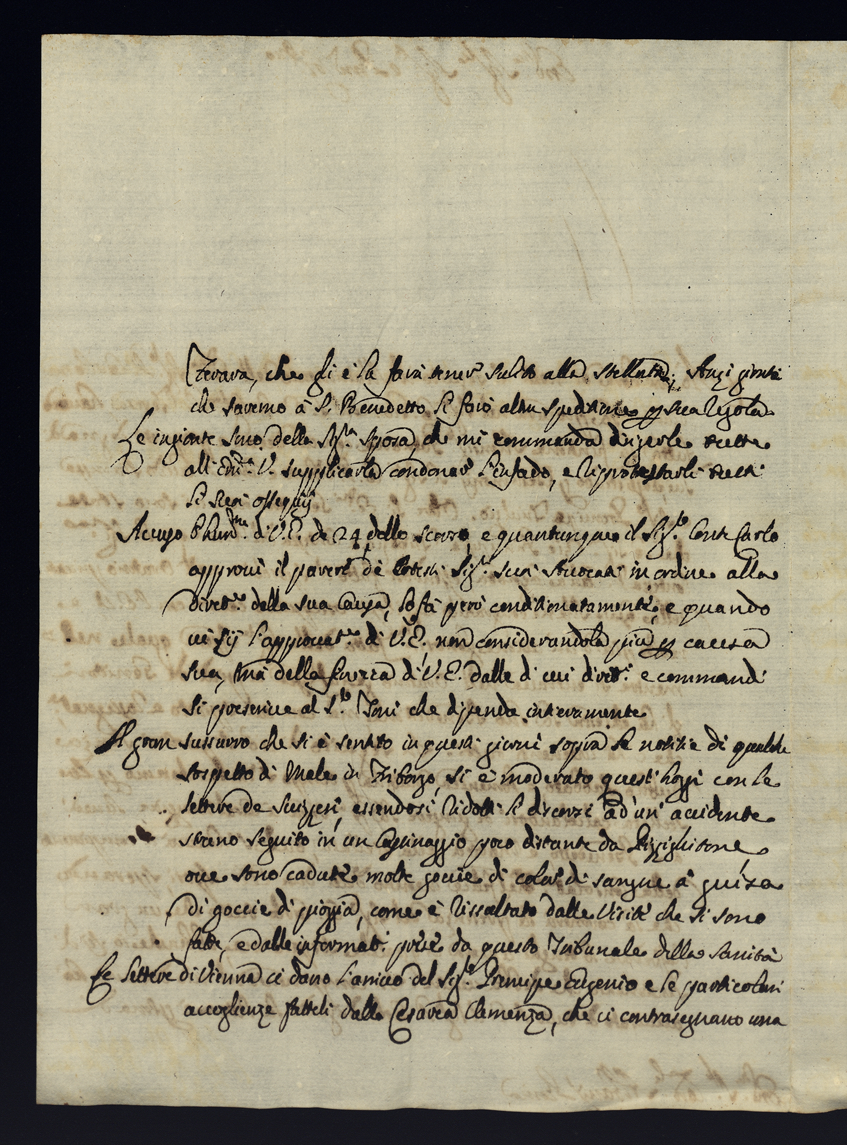 Ferrara, che gli è la farà tener subito alla stellata; Anzi giunti
che saremo à S. Benedetto se farò altra speditione per sua regola
Le ingionte sono della Sig.ra sposa, che mi commanda dirigerle rette
all'Em.a V. supplicarla condonar l'infado, e riprotestarli tutti
li suoi ossequij
Accuso l'hum.ma di V.E. de 24 dello scorso, e quantunque il Sig.r Conte Carlo
approvi il parere de cotesti Sig.ri suoi Avocati in ordine alla
dirett.ne della sua causa, lo fà però conditionatamente, e quando
vi sij l'approvat.ne di V.E. non considerandola più per causa
sua, mà della stessa di V.E. dalle di cui dirett.i e commandi
si prescrive al S.r Toni che dipenda intieramente
Il gran sussurro che si è sentito in questi giorni sopra le notitie di qualche
sospetto di Male in si è moderato quest'hoggi con le
lettere de Suizzeri, essendosi ridotti li discorsi ad un accidente
strano seguito in un Cassinaggio poco distante da Pizzighitone
oue sono cadute molte goccie di color di sangue à guisa
di goccie di pioggia, come è rissultato dalle visite che si sono
fatte, e dalle informat.i prese da questo Tribunale della Sanità
Le lettere di Vienna ci dano l'arrivo del Sig.r Prencipe Eugenio e le particolari
accoglienze fatteli dalla Cesarea Clemenza, che ci contrasegnano una